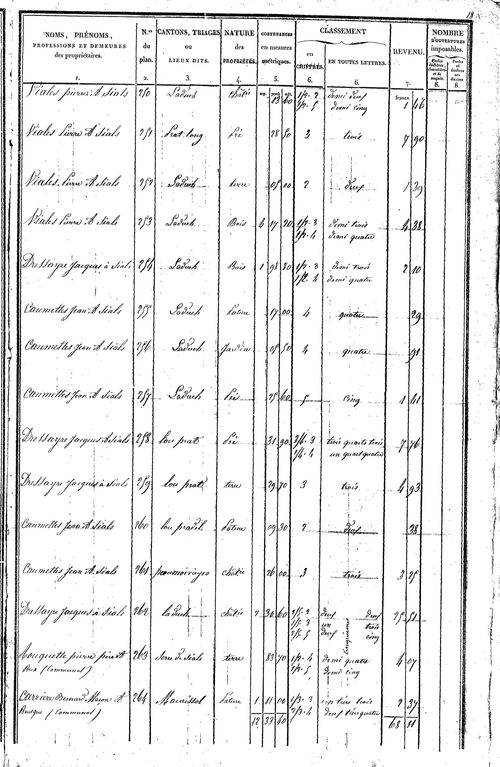 18
NOMS, PRÉNOMS, PROFESSIONS ET DEMEURES des propriétaires. N.os du plan. CANTONS, TRIAGES ou LIEUX DITS. NATURE des PROPRIÉTÉS. CONTENANCES en mesures métriques. CLASSEMENT en CHIFFRES. EN TOUTES LETTRES. REVENU. NOMBRE D'OUVERTURES imposables.
1. 2. 3. 4. 5. 6. 6. 7. 8. 8.
Viales pierre A Sials 250 Laduch 13 60 1/2 2 demi deux 1 46
1/2 5 demi cinq
Viales Pierre A Sials 251 Prat long Pré 28 50 3 trois 7 90
Viales Pierre A Sials 252 Laduch terre 05 10 2 deux 1 39
Viales Pierre A Sials 253 Laduch Bois 4 17 20 1/2 3 demi trois 4 38
1/2 4 demi quatre
Dressayre Jacques à Sials 254 Laduch Bois 1 98 80 1/2 3 demi trois 2 10
1/2 4 demi quatre
Caumettes Jean A Sials 255 Laduch Pature 17 00 4 quatre 29
Caumettes Jean A Sials 256 Laduch Jardin 05 50 4 quatre 91
Caumettes Jean A Sials 257 Laduch Pré 25 60 5 cinq 1 41
Dressayre Jacques A Sials 258 lou prat Pré 31 90 3/4 3 trois quarts trois 7 76
1/4 4 un quart quatre
Dressayre Jacques à Sials 259 lou prat terre 29 70 3 trois 4 93
Caumettes Jean A Sials 260 lou pradel Pature 09 30 2 deux 38
Caumettes Jean A Sials 261 26 00 3 trois 3 25
Dressayre Jacques à Sials 262 laduch 2 30 60 2/5 2 deux deux 25 51
1/5 3 un cinquièmes trois
2/5 5 deux cinq
pierre 263 serre de Sials terre 83 70 1/2 4 demi quatre 4 07
(Communal) 1/2 5 demi cinq
Carrière Bernard A 264 Pature 1 11 00 1/3 3 un tiers trois 2 37
Brusque (Communal) 2/3 4 deux tiers quatre
12 33 60 68 11